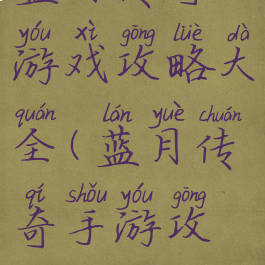 yóu xì gōng lüè dà
游戏攻略大
quán lán yuè chuán
全(蓝月传
qí shǒu yóu gōng
奇手游攻